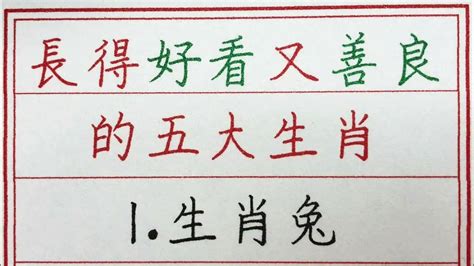 長得好看又善良
的五大生肖
1.生肖兔